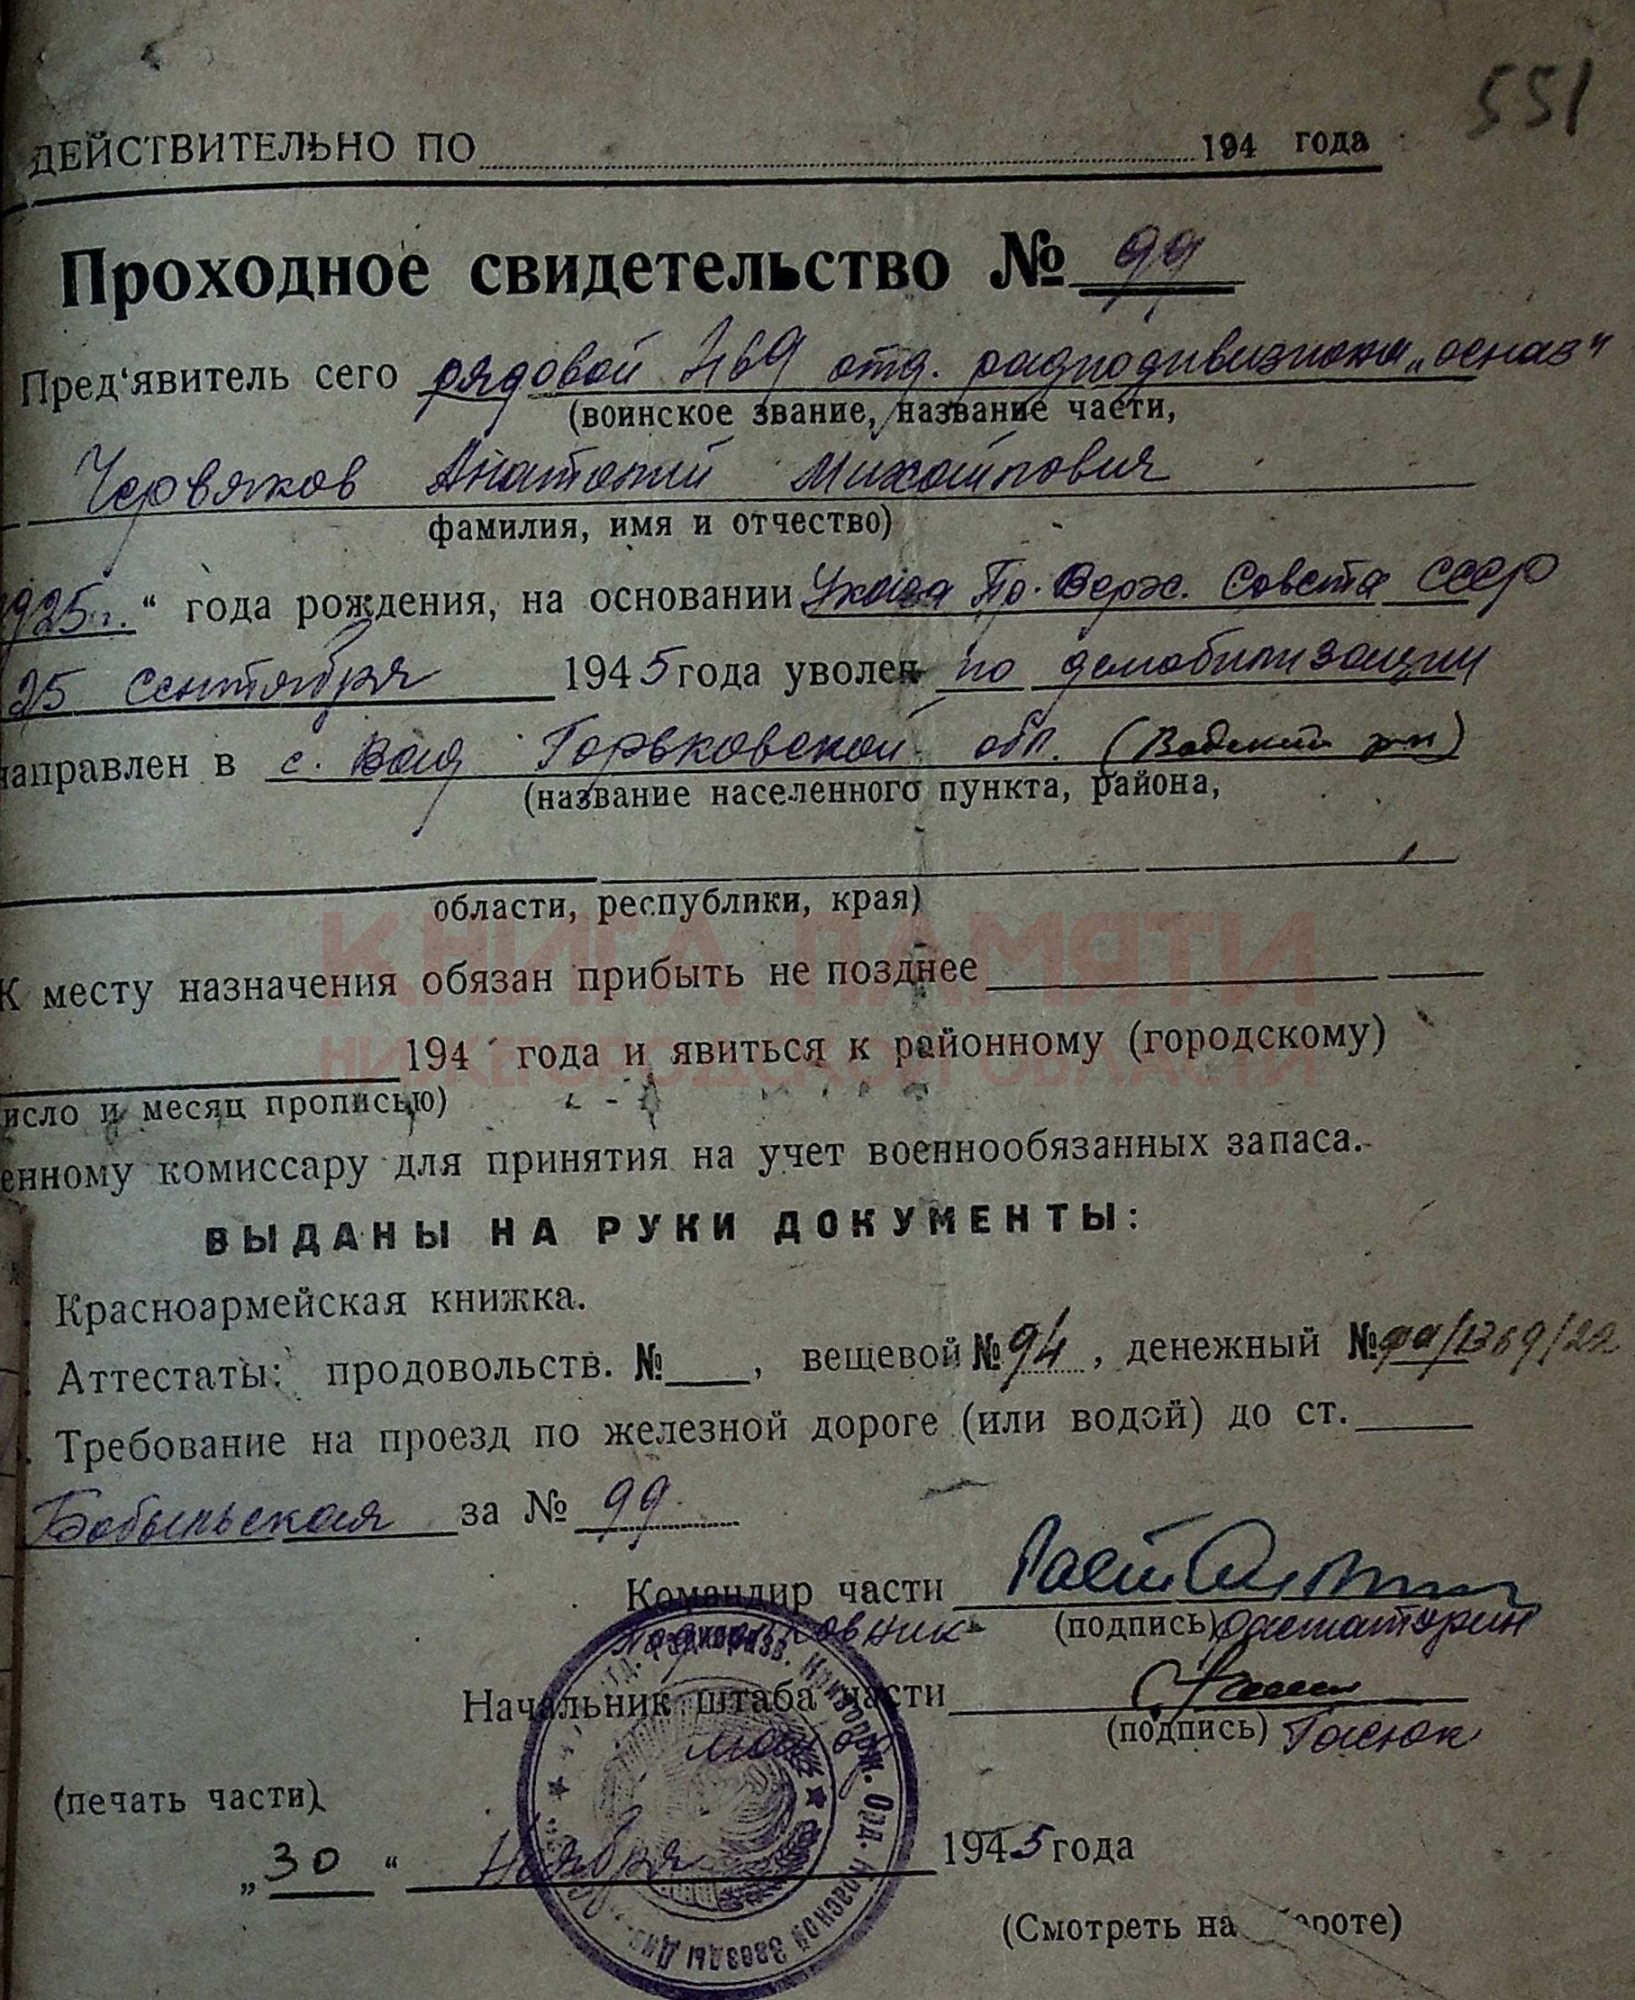 551
ДЕЙСТВИТЕЛЬНО ПО 194 года
Проходное свидетельство № 99
Пред‘явитель сего рядовой 469 отд. радиодивизиона „осназ“
(воинское звание, название части,
Червяков Анатолий Михайлович
фамилия, имя и отчество)
1925г. “ года рождения, на основании Указа Пр. Верх. Совета СССР
25 сентября 1945 года уволен по демобилизации
направлен в с. Вад Горьковской обл. (Вадский р-н)
(название населенного пункта, района,
области, республики, края)
К месту назначения обязан прибыть не позднее
194 года и явиться к районному (городскому)
число и месяц прописью)
енному комиссару для принятия на учет военнообязанных запаса.
ВЫДАНЫ НА РУКИ ДОКУМЕНТЫ:
Красноармейская книжка.
Аттестаты: продовольств. № , вещевой № 94 , денежный № /1369/22
Требование на проезд по железной дороге (или водой) до ст.
Бобыльская за № 99
Командир части
подполковник (подпись) Расматурин
Начальник штаба части
(подпись) Гасюк
майор
(печать части)
„30“ Ноября 1945 года
(Смотреть на обороте)
Орд. Красной Звезды
КНИГА ПАМЯТИ
НИЖЕГОРОДСКОЙ ОБЛАСТИ